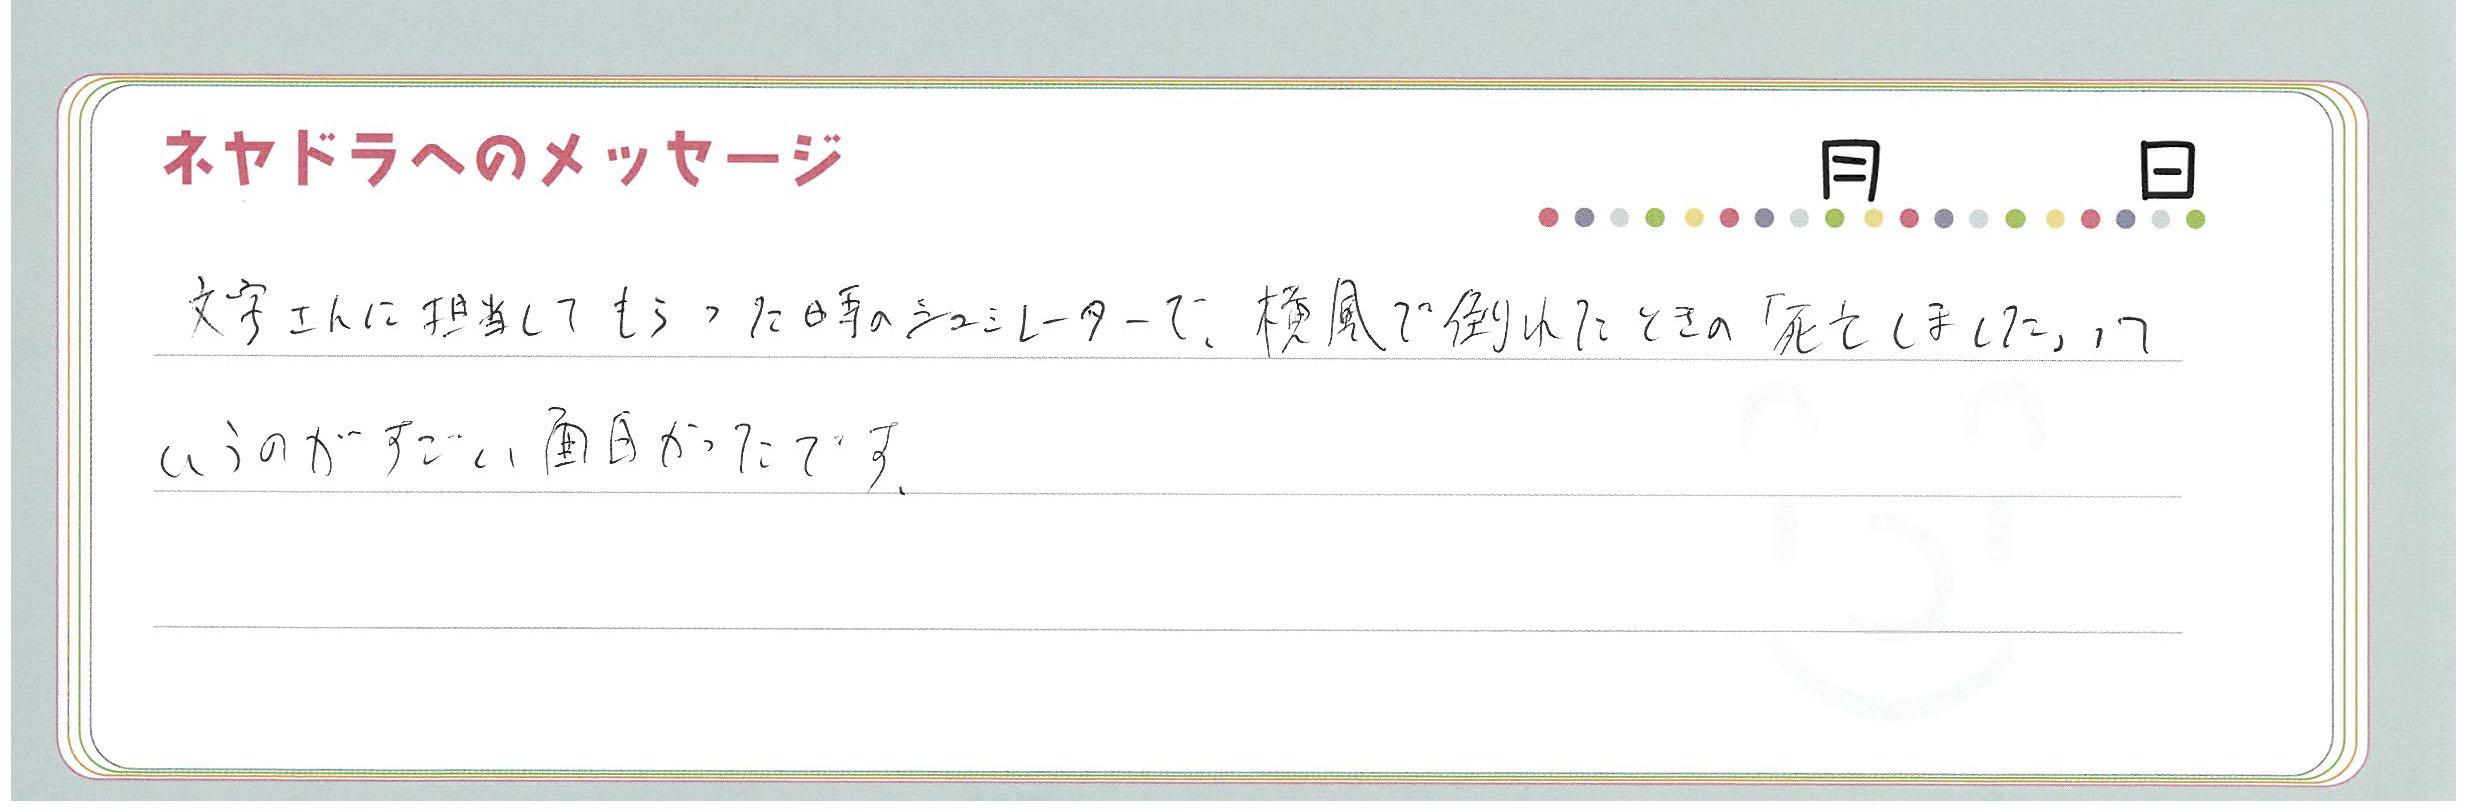 ネヤドラへのメッセージ
月 日
文字さんに担当してもらった時のシュミレーターで、横風で倒れたときの「死亡しました」って
いうのがすごい面白かったです。